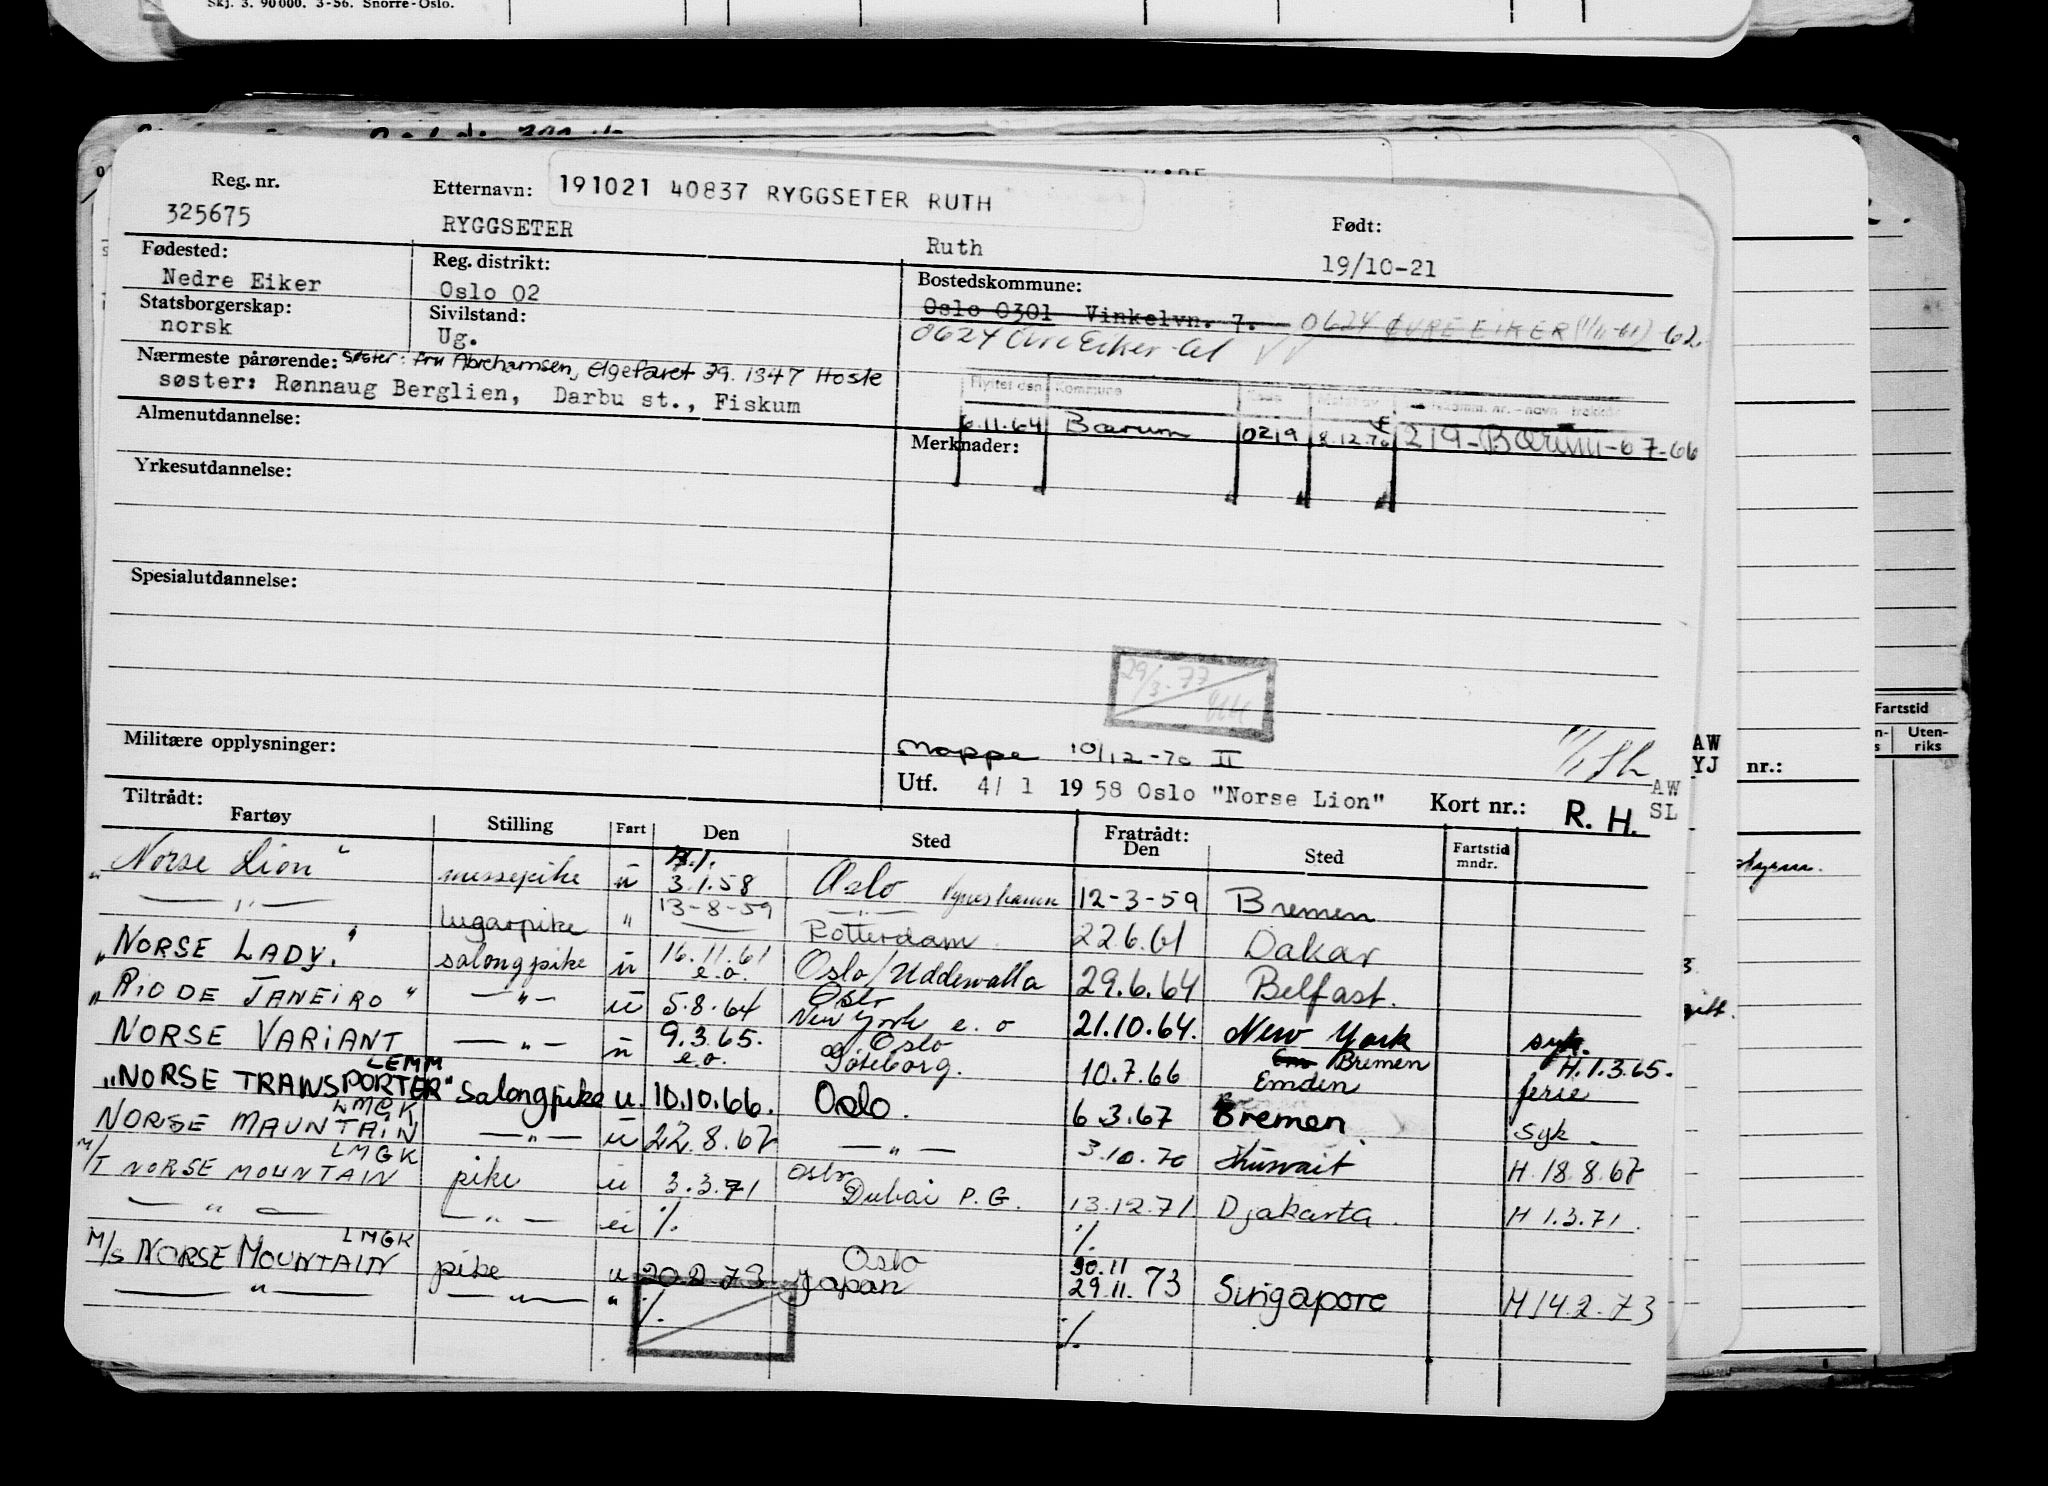 Skj. 3. 90000. 3-56. Snorre-Oslo.
Reg. nr. Etternavn: 191021 40837 RYGGSETER RUTH Født:
325675 RYGGSETER Ruth 19/10-21
Fødested: Reg. distrikt: Bostedskommune:
Nedre Eiker Oslo 02 Oslo 0301 Vinkelvn. 7. 0624 ØVRE EIKER (1/11-61) -62.
Statsborgerskap: Sivilstand:
norsk Ug. 0624 Øvre Eiker
Nærmeste pårørende: Søster: fru Abrahamsen, Elgefaret 39. 1347 Hosle
søster: Rønnaug Berglien, Darbu st., Fiskum
Flyttet den Kommune
6.11.64 Bærum 0219 8.12.70 219-Bærum-67-66
Almenutdannelse: Merknader:
Yrkesutdannelse:
Spesialutdannelse:
29/3-77
Militære opplysninger: Mappe 10/12-70 II
Utf. 4/ 1 1958 Oslo "Norse Lion" Kort nr.: R. H.
AW
SL
AW
YJ
nr.:
Fartstid
Uten-
riks
Tiltrådt: Fratrådt:
Fartøy Stilling Fart Den Sted Den Sted Fartstid mndr.
"Norse Lion" messepike u 3.1.58 Oslo 12-3-59 Bremen
— " — lugarpike " 13-8-59 Rotterdam 22.6.61 Dakar
"NORSE LADY." salongpike u 16.11.61 e.o. Oslo/Uddevalla 29.6.64 Belfast.
"RIO DE JANEIRO" — " — u 5.8.64 Oslo New York e.o 21.10.64. New York syk.
NORSE VARIANT — " — u 9.3.65. e.o. Oslo Göteborg. 10.7.66 Bremen Emden H.1.3.65. ferie
LEMM
"NORSE TRANSPORTER" Salongpike u. 10.10.66. Oslo. 6.3.67 Bremen. syk.
LMGK
NORSE MAUNTAIN — " — u 22.8.67 — " — 3.10.70 Kuwait H.18.8.67
LMGK
M/T NORSE MOUNTAIN pike u 3.3.71 Oslo Dubai P.G. 13.12.71. Djakarta. H 1.3.71.
— " — — " — u ./. ./.
LMGK
M/S NORSE MOUNTAIN pike u 20.2.73 Oslo Japan 30.11 29.11.73 Singapore H 14.2.73
— " — — " — " ./. ./.